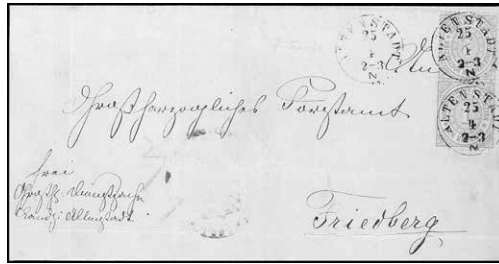 ALTENSTADT
25
4
2-3
N
ALTENSTADT
25
4
2-3
N
An
ALTENSTADT
25
4
2-3
N
Großherzogliches Forstamt
frei
Großh. Dienstsache
Altenstadt.
Friedberg.